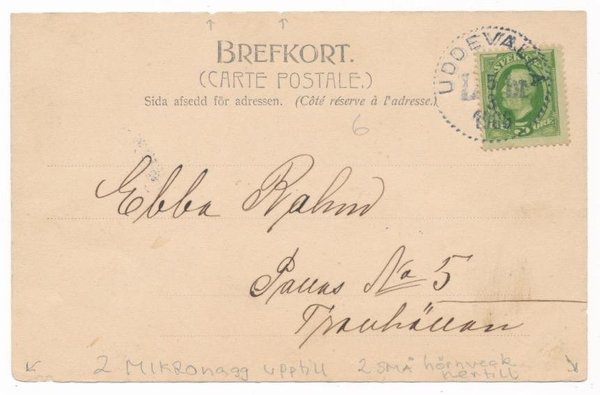 BREFKORT.
(CARTE POSTALE.)
Sida afsedd för adressen. (Côté réserve à l'adresse.)
UDDEVALLA
SVERIGE
5 ÖRE
6
Ebba
No 5
Trollhättan
2 MIKRONAGG upptill 2 SMÅ hörnveck
nertill